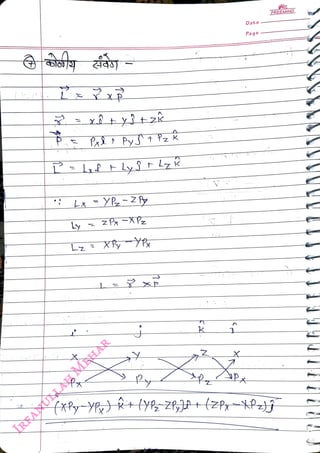 Date
Page
⑦ कोणीय संवेग -
L⃗ = r⃗ x p⃗
r⃗ = xî + yĵ + zk̂
P⃗ = Pxî + Pyĵ + Pz k̂
L⃗ = Lxî + Lyĵ + Lz k̂
∵ Lx = yPz - zPy
Ly = zPx - xPz
Lz = xPy - yPx
L = r⃗ x p⃗
i j k̂ î
x y z x
Px Py Pz Px
(xPy - yPx) k̂ + (yPz - zPy) î + (zPx - xPz) ĵ
IRFANULLAH MEHAR